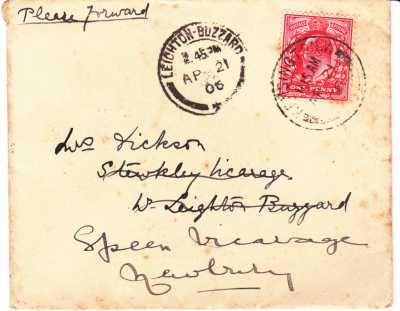 Please forward
LEIGHTON-BUZZARD
2.45PM
AP 21
06
ONE PENNY
Mrs Dickson
Stewkley Vicarage
Nr. Leighton Buzzard
Speen Vicarage
Newbury